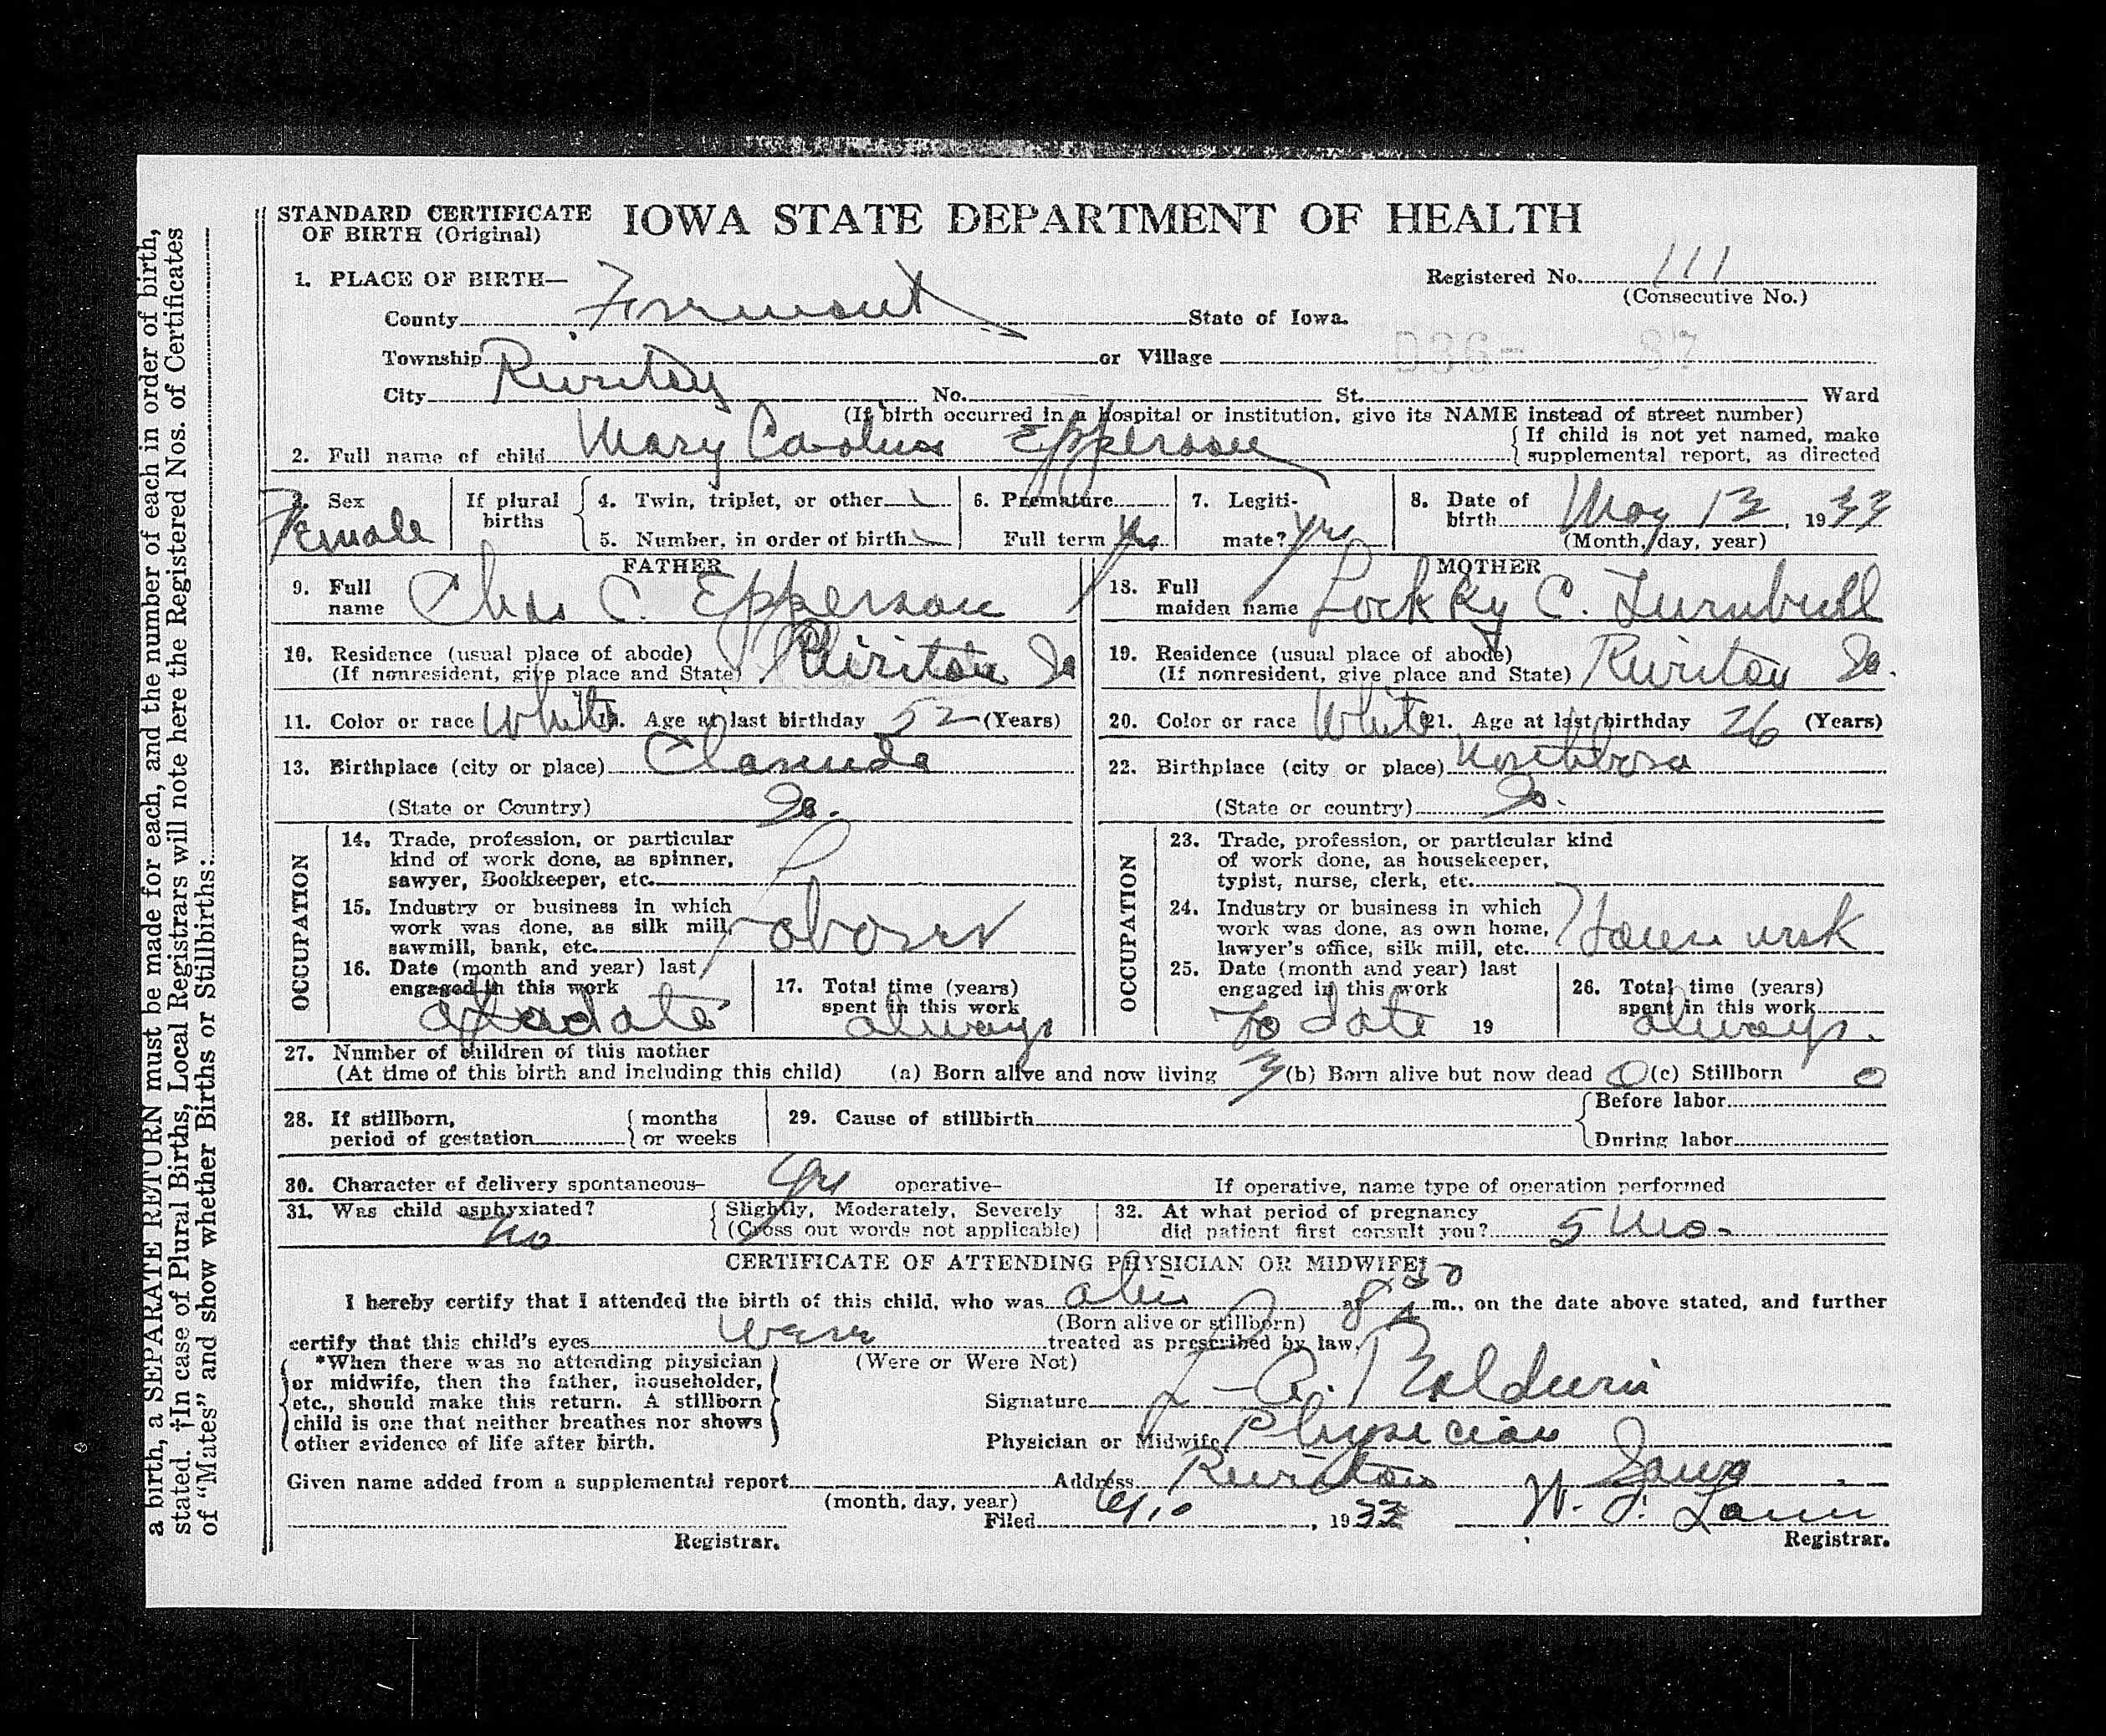 STANDARD CERTIFICATE OF BIRTH (Original)
IOWA STATE DEPARTMENT OF HEALTH
1. PLACE OF BIRTH—
Registered No. 111
(Consecutive No.)
County Fremont State of Iowa.
Township or Village D36- 87
City Riverton No. St. Ward
(If birth occurred in a hospital or institution, give its NAME instead of street number)
2. Full name of child Mary Epperson {If child is not yet named, make supplemental report, as directed
3. Sex Female
If plural births {4. Twin, triplet, or other
5. Number, in order of birth
6. Premature
Full term Yes
7. Legitimate? Yes
8. Date of birth May 13, 1933
(Month, day, year)
FATHER
9. Full name Chas C. Epperson
10. Residence (usual place of abode)
(If nonresident, give place and State) Riverton Ia
11. Color or race White 12. Age at last birthday 52 (Years)
13. Birthplace (city or place) Clarinda
(State or Country) Ia.
OCCUPATION
14. Trade, profession, or particular kind of work done, as spinner, sawyer, Bookkeeper, etc.
15. Industry or business in which work was done, as silk mill, sawmill, bank, etc. Laborer
16. Date (month and year) last engaged in this work to date
17. Total time (years) spent in this work always
MOTHER
18. Full maiden name Lockky C. Turnbull
19. Residence (usual place of abode)
(If nonresident, give place and State) Riverton Ia.
20. Color or race White 21. Age at last birthday 26 (Years)
22. Birthplace (city or place) Northboro
(State or country) Ia.
OCCUPATION
23. Trade, profession, or particular kind of work done, as housekeeper, typist, nurse, clerk, etc.
24. Industry or business in which work was done, as own home, lawyer's office, silk mill, etc. House work
25. Date (month and year) last engaged in this work To date 19
26. Total time (years) spent in this work always.
27. Number of children of this mother
(At time of this birth and including this child) (a) Born alive and now living 3 (b) Born alive but now dead 0 (c) Stillborn 0
28. If stillborn, period of gestation {months or weeks
29. Cause of stillbirth {Before labor
During labor
30. Character of delivery spontaneous— Yes operative— If operative, name type of operation performed
31. Was child asphyxiated? No {Slightly, Moderately, Severely
(Cross out words not applicable)
32. At what period of pregnancy did patient first consult you? 5 Mo.
CERTIFICATE OF ATTENDING PHYSICIAN OR MIDWIFE†
I hereby certify that I attended the birth of this child, who was alive at 8:30 m., on the date above stated, and further
(Born alive or stillborn)
certify that this child's eyes were treated as prescribed by law.
(Were or Were Not)
{*When there was no attending physician or midwife, then the father, householder, etc., should make this return. A stillborn child is one that neither breathes nor shows other evidence of life after birth.}
Signature Baldwin
Physician or Midwife Physician
Given name added from a supplemental report
(month, day, year)
Address Riverton Iowa
Filed 6/10, 1933
Registrar.
Registrar.
a birth, a SEPARATE RETURN must be made for each, and the number of each in order of birth,
stated. †In case of Plural Births, Local Registrars will note here the Registered Nos. of Certificates
of "Mates" and show whether Births or Stillbirths: